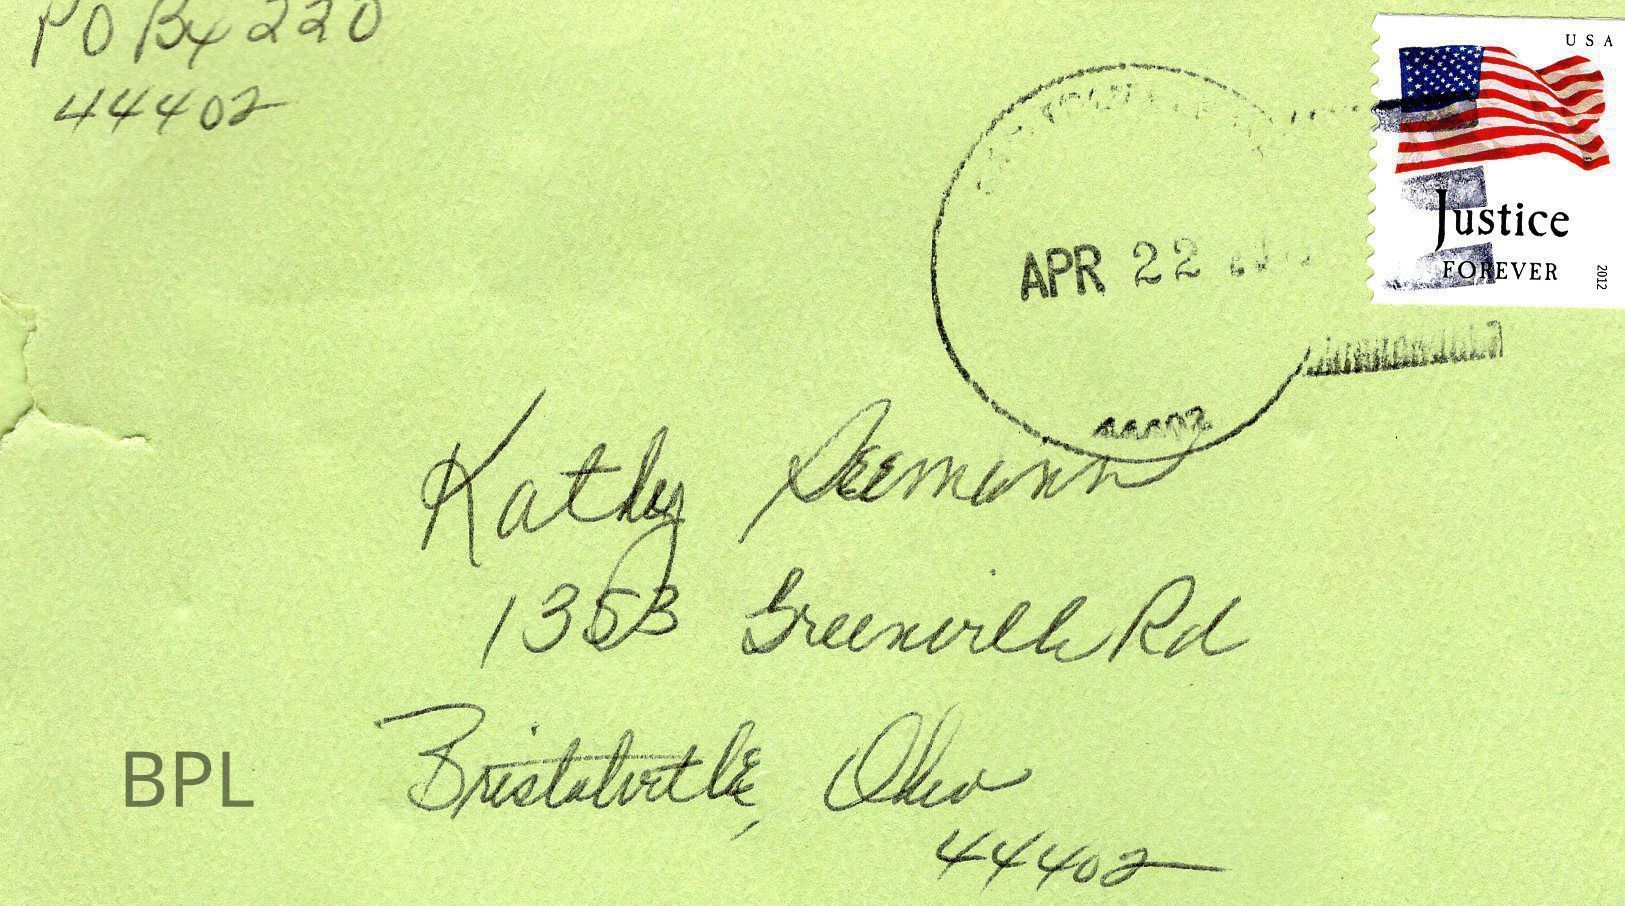 PO Bx 220
44402
USA
Justice
FOREVER
2012
APR 22
44402
Kathy Seemann
1353 Greenville Rd
Bristolville, Ohio
44402
BPL